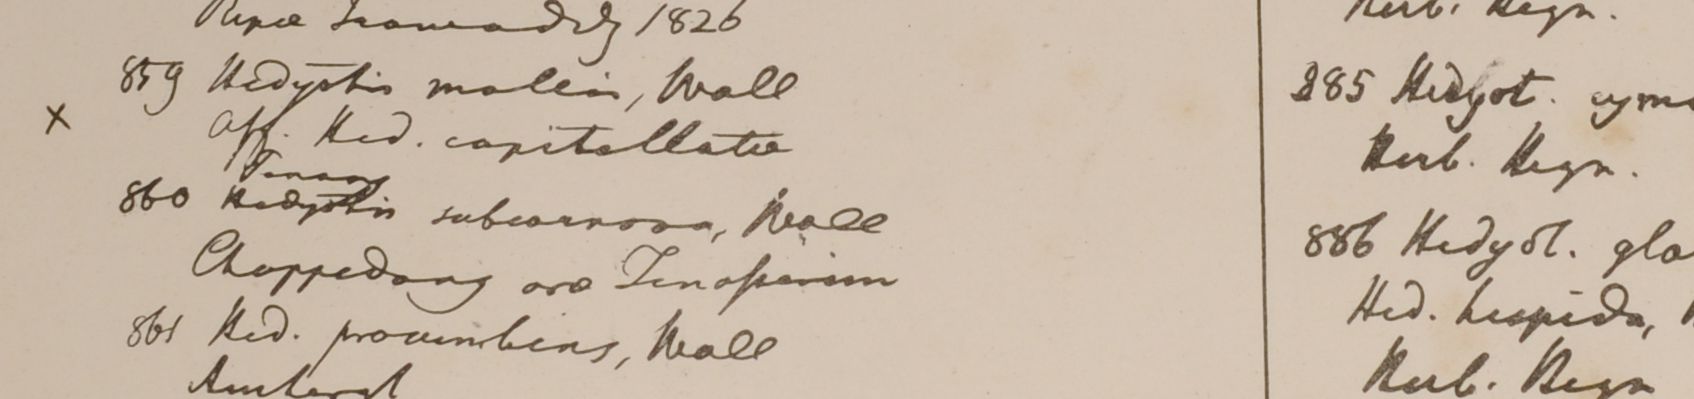 Ripae Irawaddy 1826
859 Hedyotis mollis, Wall
x
Aff. Hed. capitellatae
Penang
860 Hedyotis subcarnosa, Wall
Chappedong orae Tenasserim
861 Hed. procumbens, Wall
Amherst
Herb. Hegn.
885 Hedyot. cyma
Herb. Hegn.
886 Hedyot. gla
Hed. hispida,
Herb. Hegn